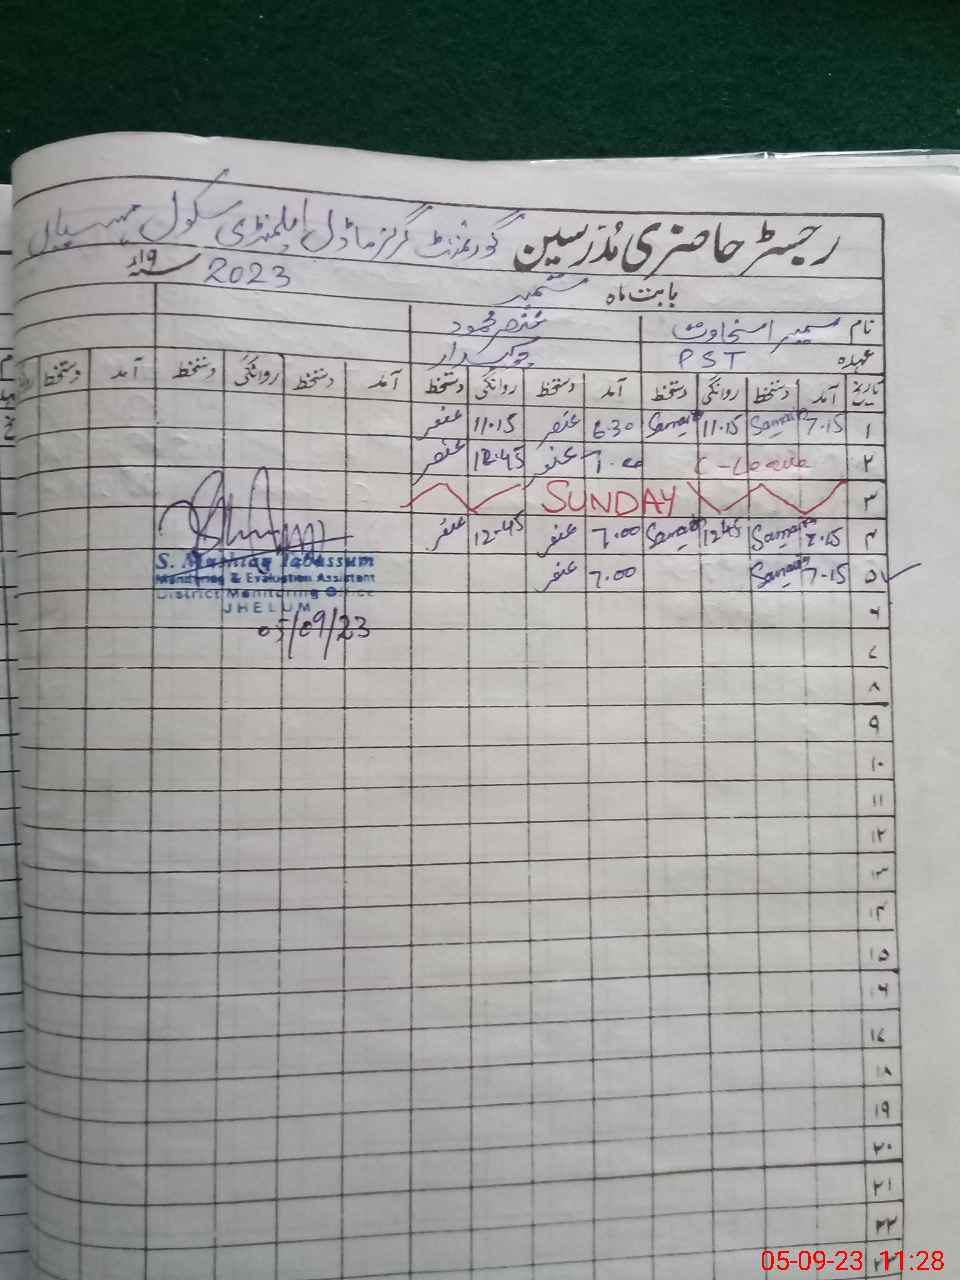 رجسٹر حاضری مدرسین گورنمنٹ گرلز ماڈل ایلمنٹری سکول
بابت ماہ ستمبر 2023 سنہ ۱۹ء
نام سمیرا سخاوت عنصر محمود
عہدہ PST چوکیدار
تاریخ آمد دستخط روانگی دستخط آمد دستخط روانگی دستخط آمد دستخط روانگی دستخط آمد دستخط
۱ 7.15 Samaira 11.15 Samaira 6.30 عنصر 11.15 عنصر
۲ C-Leave 7.00 عنصر 12.45 عنصر
۳ SUNDAY
۴ 7.15 Samaira 1245 Samaira 7.00 عنصر 12.45 عنصر
۵ 7.15 Samaira 7.00 عنصر
S. Mushtaq Tabassum
Monitoring & Evaluation Assistant
District Monitoring Office
JHELUM
05/09/23
۶
۷
۸
۹
۱۰
۱۱
۱۲
۱۳
۱۴
۱۵
۱۶
۱۷
۱۸
۱۹
۲۰
۲۱
۲۲
۲۳
05-09-23 11:28